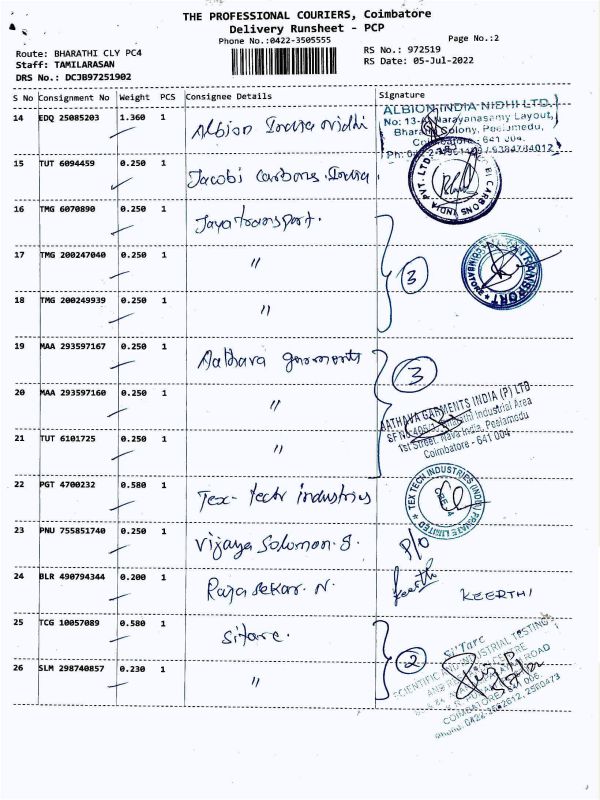 THE PROFESSIONAL COURIERS, Coimbatore
Delivery Runsheet - PCP
Phone No.:0422-3505555
Page No.:2
Route: BHARATHI CLY PC4
Staff: TAMILARASAN
DRS No.: DCJB97251902
RS No.: 972519
RS Date: 05-Jul-2022
S No Consignment No Weight PCS Consignee Details Signature
14 EDQ 25085203 1.360 1 Albion India nidhi
ALBION INDIA NIDHI LTD.
Narayanasamy Layout,
Colony, Peelamedu,
15 TUT 6094459 0.250 1 Jacobi Carbons India.
16 TMG 6070890 0.250 1 Jaya transport.
17 TMG 200247040 0.250 1 "
3
TRANSPORT
18 TMG 200249939 0.250 1 "
19 MAA 293597167 0.250 1 Sathava garments
3
20 MAA 293597160 0.250 1 "
SATHAVA GARMENTS INDIA (P) LTD
Industrial Area
1st Street, Nava India, Peelamedu
Coimbatore - 641 004
21 TUT 6101725 0.250 1 "
22 PGT 4700232 0.580 1 Tex-Tech industries
TEX TECH INDUSTRIES (INDIA) PRIVATE LIMITED
23 PNU 755851740 0.250 1 Vijaya Solomon.S.
P/O
24 BLR 490794344 0.200 1 Rajasekar. N.
Keerthi KEERTHI
25 TCG 10057089 0.580 1 Sitarc.
2
Si'Tarc
SCIENTIFIC AND INDUSTRIAL TESTING
26 SLM 298740857 0.230 1 "